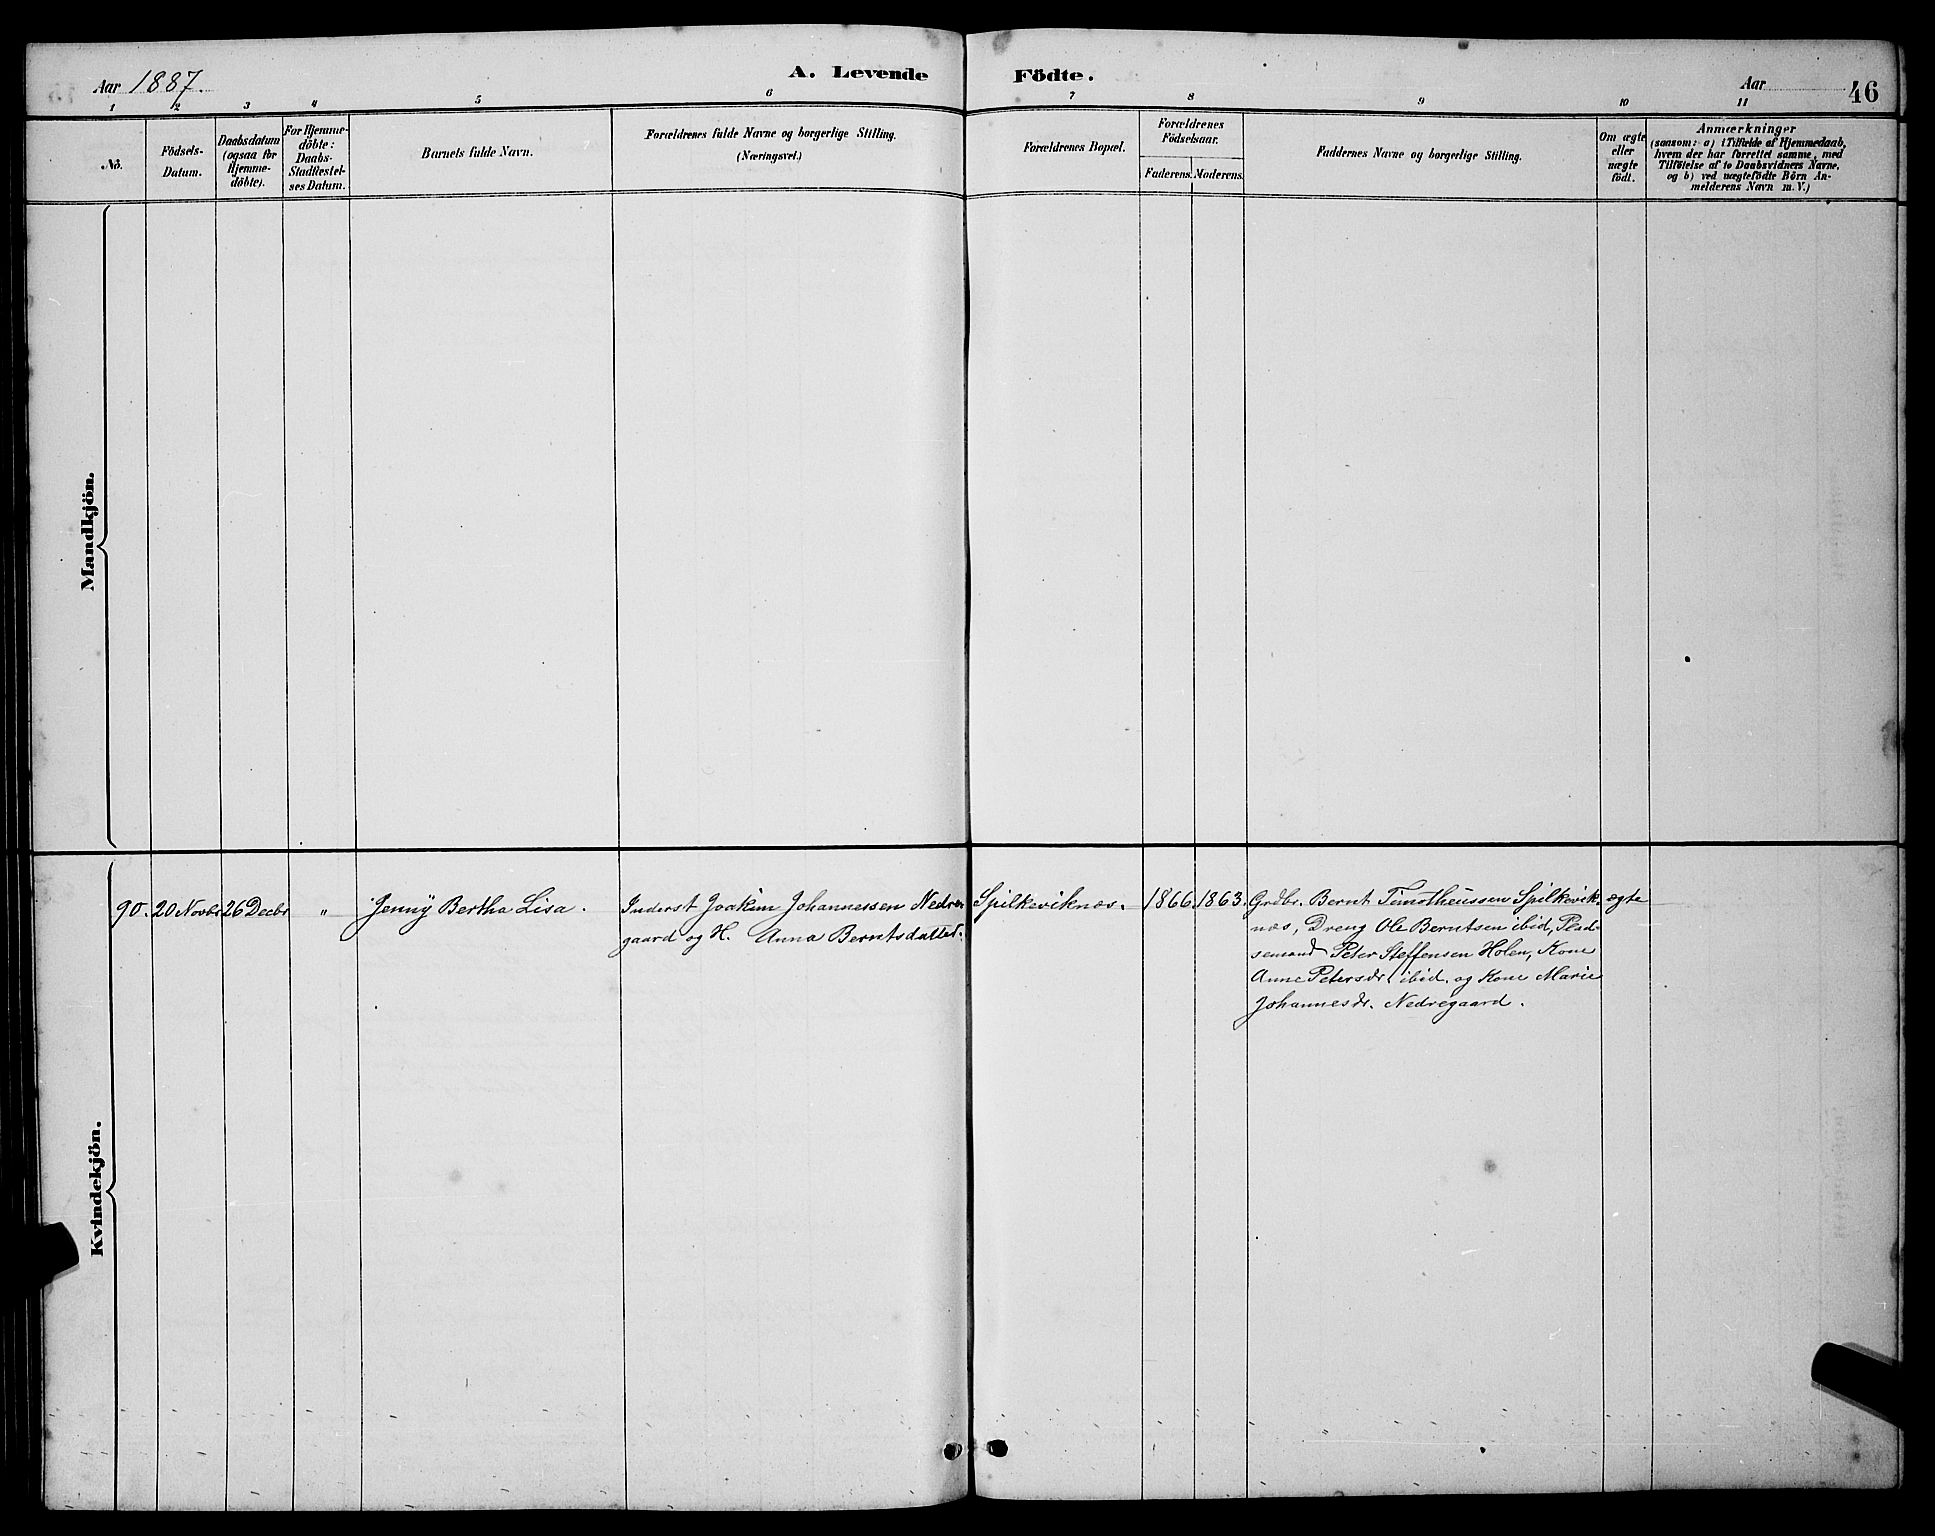 Aar 1887.
A. Levende Födte.
Aar
46
1 2 3 4 5 6 7 8 9 10 11
No.
Födsels-
Datum.
Daabsdatum
(ogsaa for
Hjemme-
döbte).
For Hjemme-
döbte:
Daabs-
Stadfestel-
ses Datum.
Barnets fulde Navn.
Forældrenes fulde Navne og borgerlige Stilling.
(Næringsvei.)
Forældrenes Bopæl.
Forældrenes
Födselsaar.
Faderens. Moderens.
Faddernes Navne og borgerlige Stilling.
Om ægte
eller
uægte
födt.
Anmærkninger
(saasom: a) i Tilfælde af Hjemmedaab,
hvem der har forrettet samme, med
Tilföielse af to Daabsvidners Navne,
og b) ved uægtefödte Börn An-
melderens Navn m. V.)
Mandkjön.
Kvindekjön.
90. 20 Novbr 26 Decbr " Jenny Bertha Lisa.
Inderst Joakim Johannessen Nedre-
gaard og H. Anna Berntsdatter.
Spilkeviknæs. 1866. 1863.
Grdbr. Bernt Timotheussen Spilkevik-
næs, Dreng Ole Berntsen ibid, Plad-
semand Peter Steffensen Holen, Kone
Anne Petersdr. ibid. og Kone Marie
Johannesdr. Nedregaard.
ægte